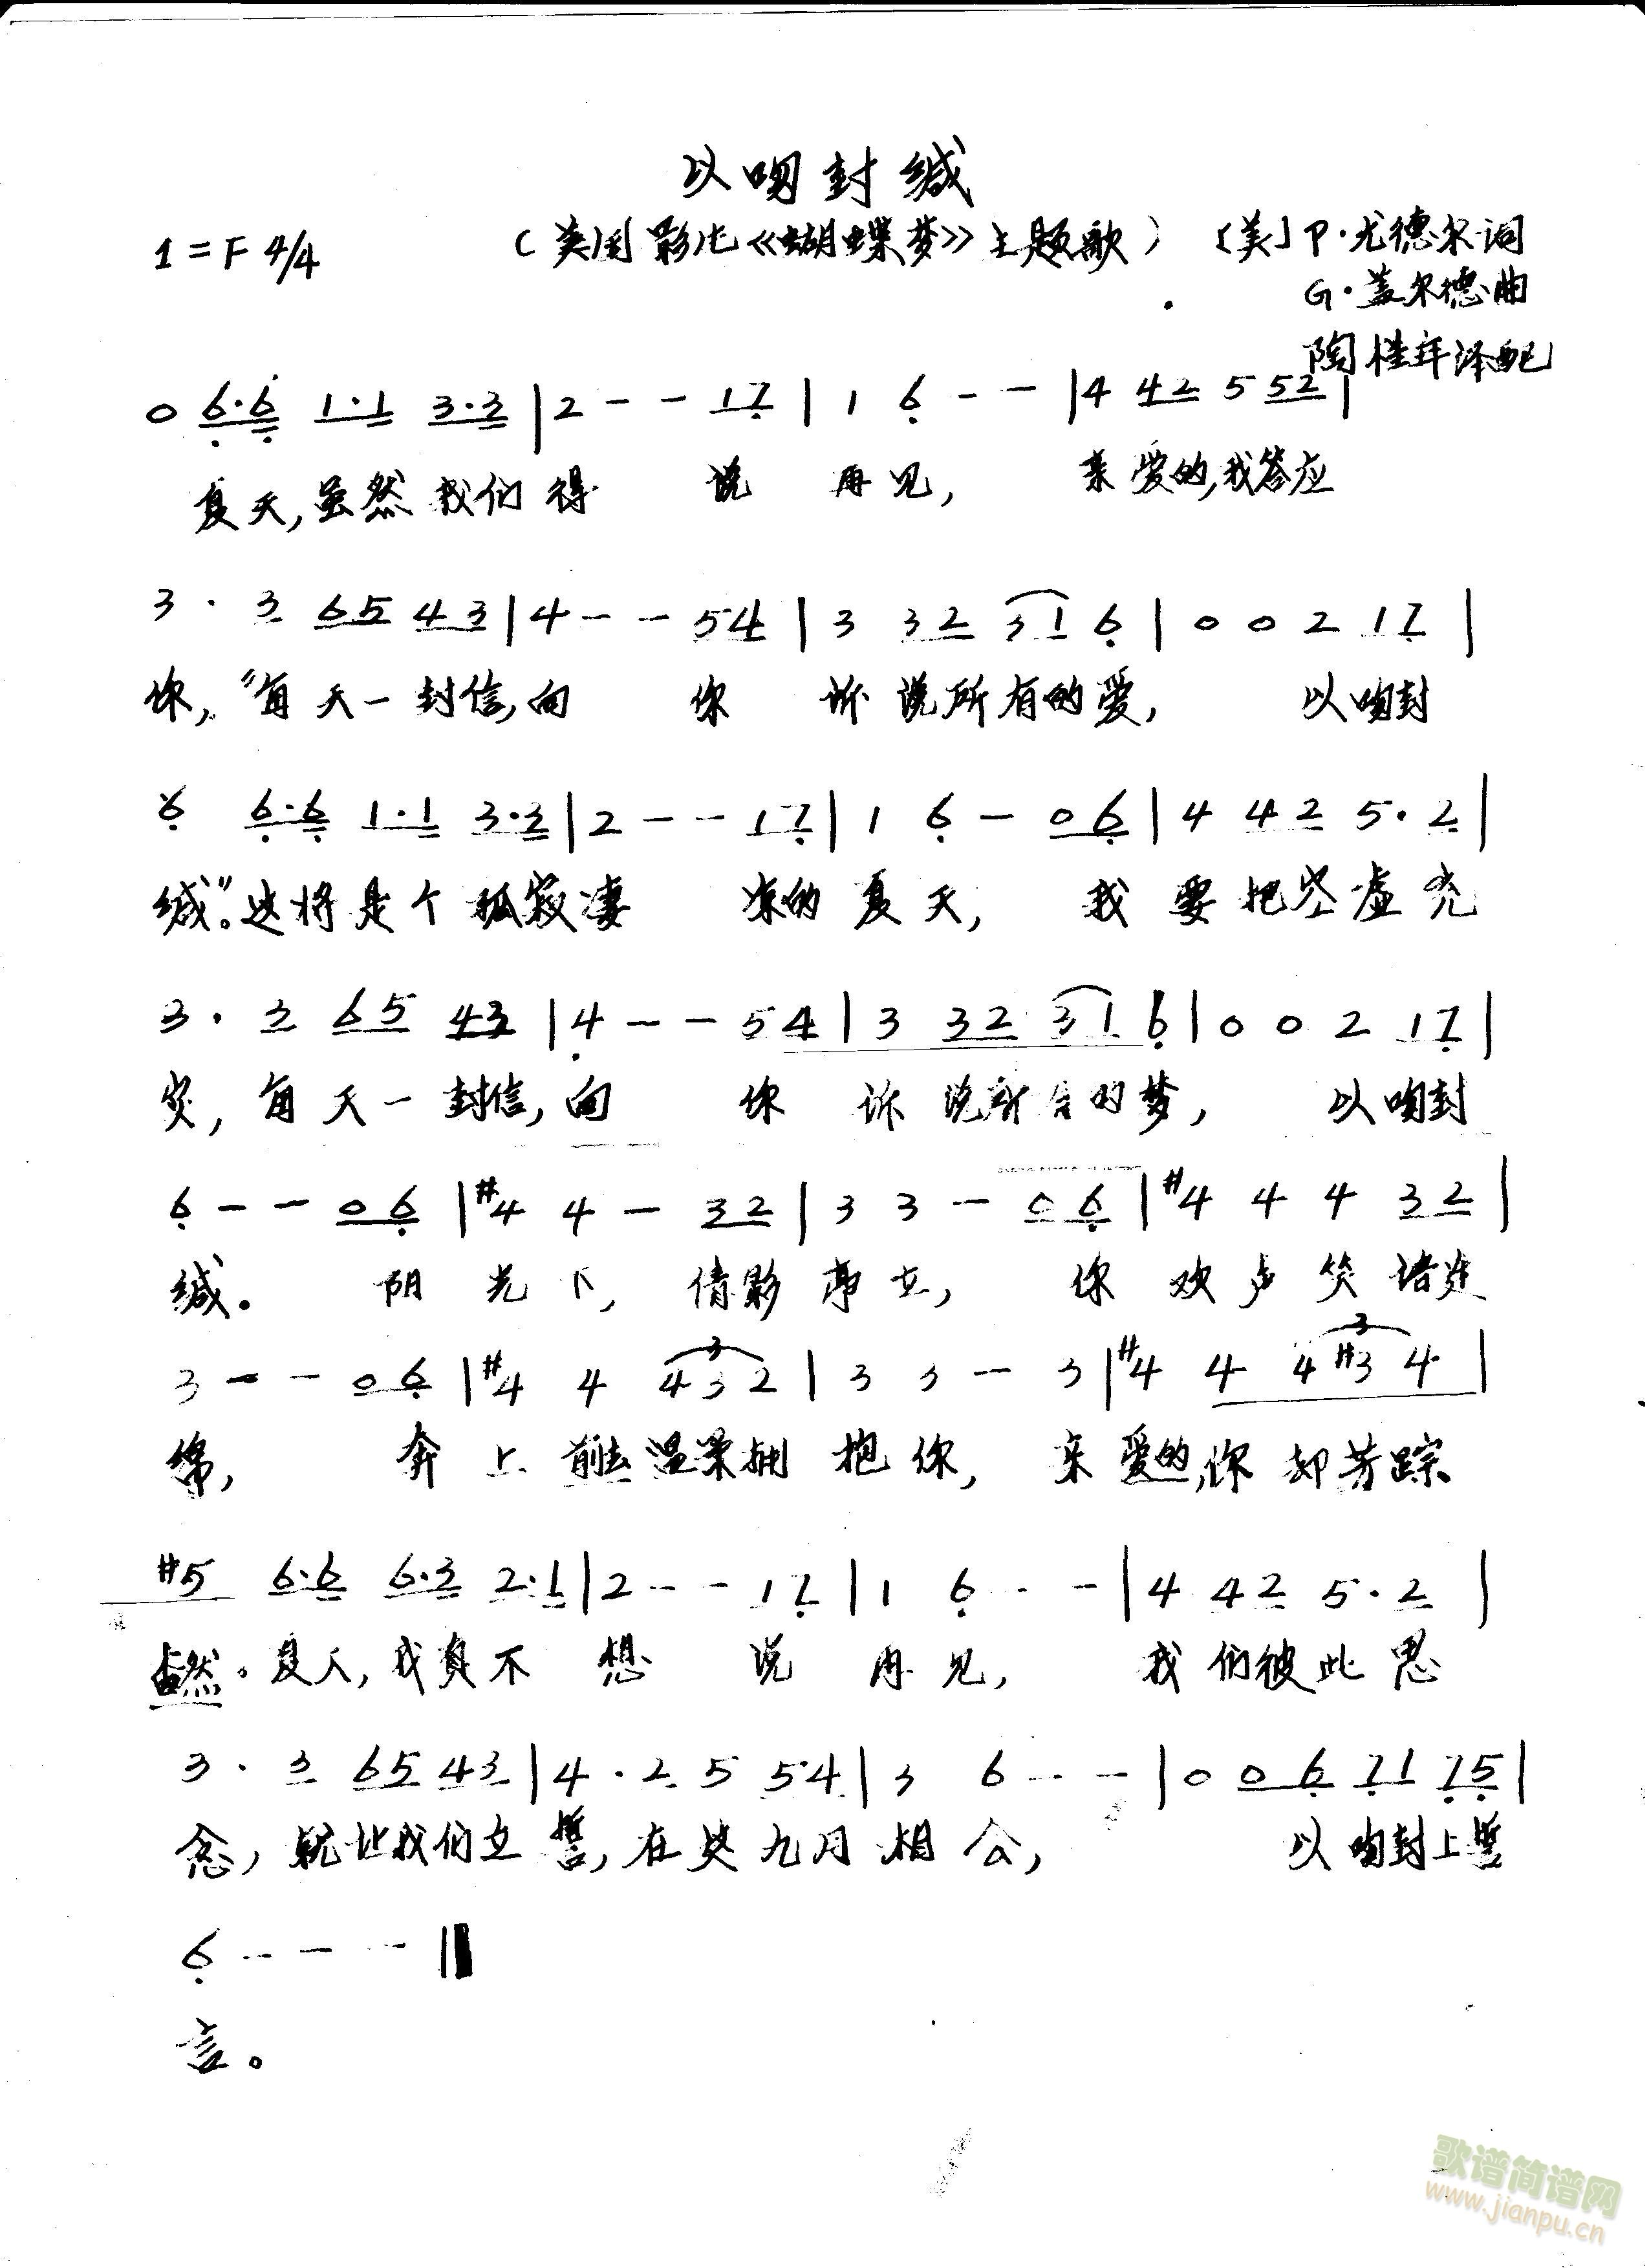 以吻封缄
1=F 4/4 (美国影片《蝴蝶梦》主题歌) [美] P·尤德尔词
G·盖尔德曲
陶桂年译配
0 6·6 1·1 3·3 | 2 - - 17 | 1 6 - - | 4 42 5 52 |
夏天,虽然我们得 说 再见, 亲爱的,我答应
3 · 3 65 43 | 4 - - 54 | 3 32 31 6 | 0 0 2 17 |
你,“每天一封信,向 你 诉说所有的爱, 以吻封
6 6·6 1·1 3·3 | 2 - - 17 | 1 6 - 06 | 4 42 5·2 |
缄”。这将是个孤寂凄 凉的夏天, 我要把空虚充
3 · 3 65 43 | 4 - - 54 | 3 32 31 6 | 0 0 2 17 |
实,每天一封信,向 你 诉说所有的梦, 以吻封
6 - - 06 | #4 4 - 32 | 3 3 - 06 | #4 4 4 32 |
缄。 阳光下,倩影亭立, 你欢声笑语连
3 - - 06 | #4 4 432 | 3 3 - 3 | #4 4 4#34 |
绵, 奔上前去温柔拥抱你, 亲爱的,你却芳踪
#5 6·6 6·3 2·1 | 2 - - 17 | 1 6 - - | 4 42 5·2 |
杳然。夏天,我真不想 说再见, 我们彼此思
3 · 3 65 43 | 4 · 2 5 54 | 3 6 - - | 0 06 71 75 |
念,就让我们立誓,在这九月相会, 以吻封上誓
6 - - - ‖
言。
歌谱简谱网
www.jianpu.cn